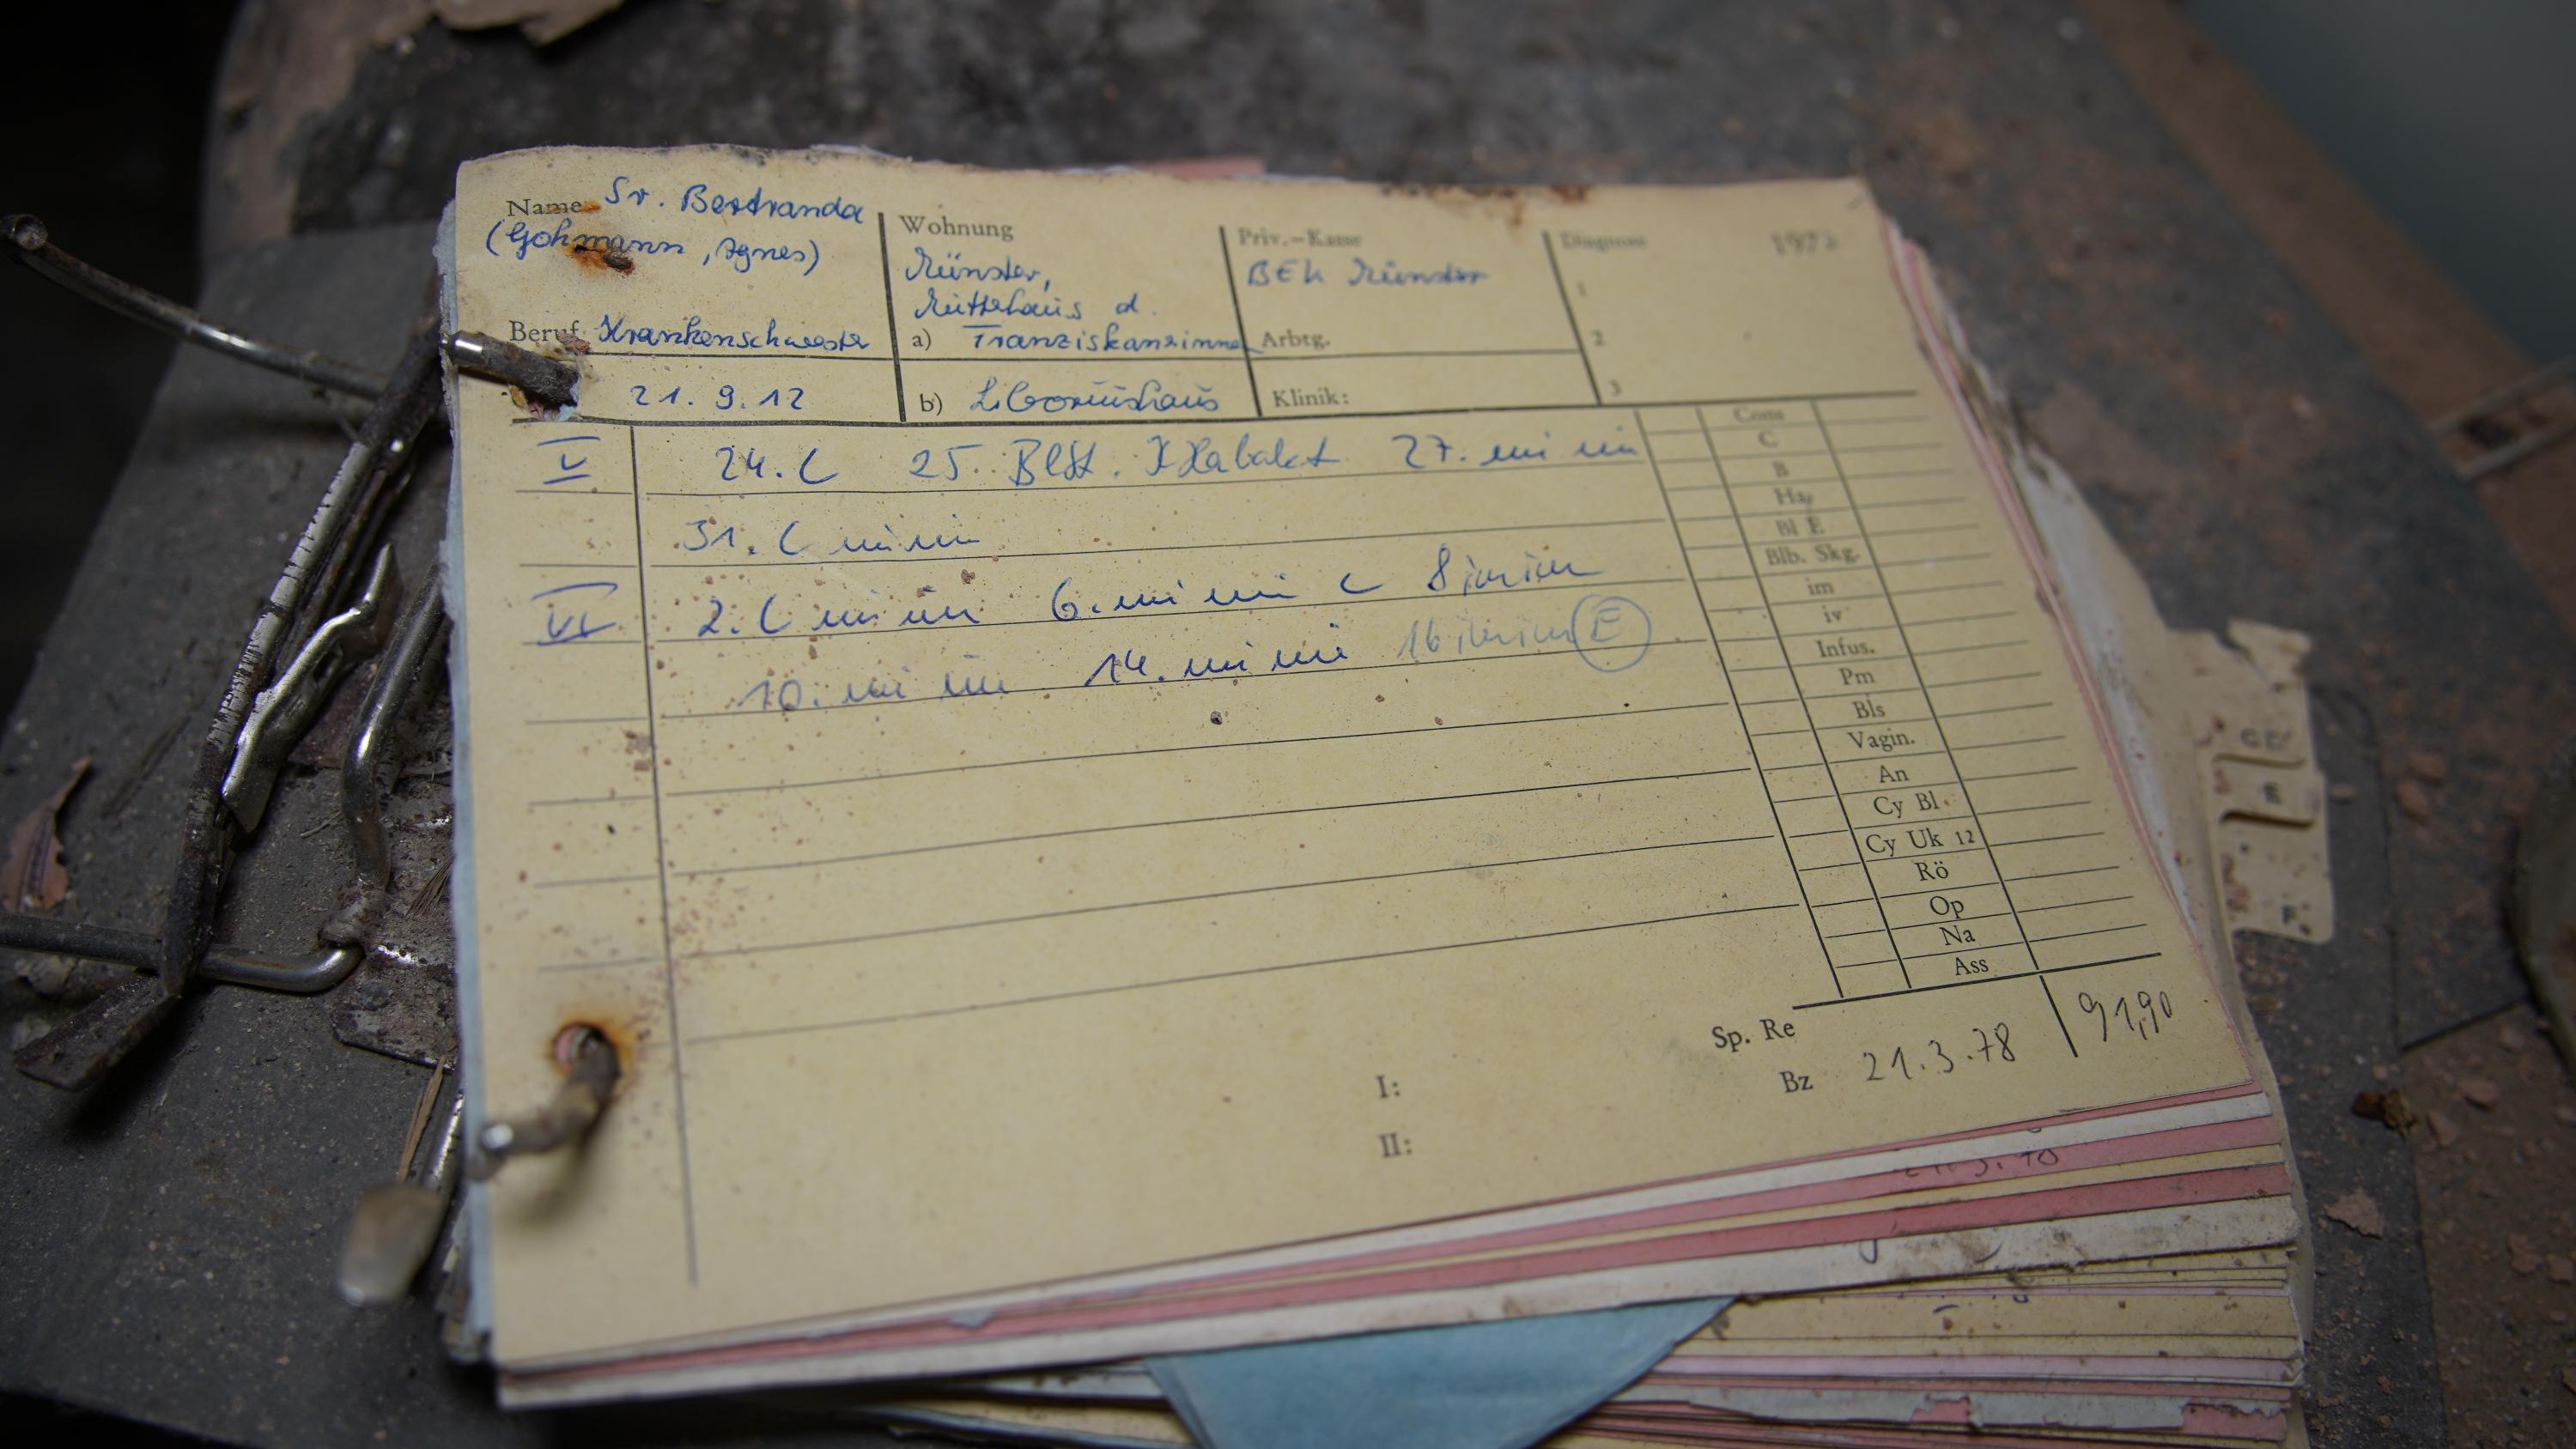 Name Sr. Bertranda
(Gohmann, Agnes)
Beruf Krankenschwester
21. 9. 12
Wohnung
Münster,
Mutterhaus d.
a) Franziskanerinnen
b) Liboriushaus
Priv.-Kasse
BEK Münster
Arbtg.
Klinik:
Diagnose
1
2
3
V 24. C 25. 27.
31. C
VI 2. C 6. C 8
10. 14. 16 E
Cons
C
B
Ha
Bl E
Blb. Skg.
im
iv
Infus.
Pm
Bls
Vagin.
An
Cy Bl.
Cy Uk 12
Rö
Op
Na
Ass
Sp. Re
Bz 21.3.78 91,90
I:
II:
E
F